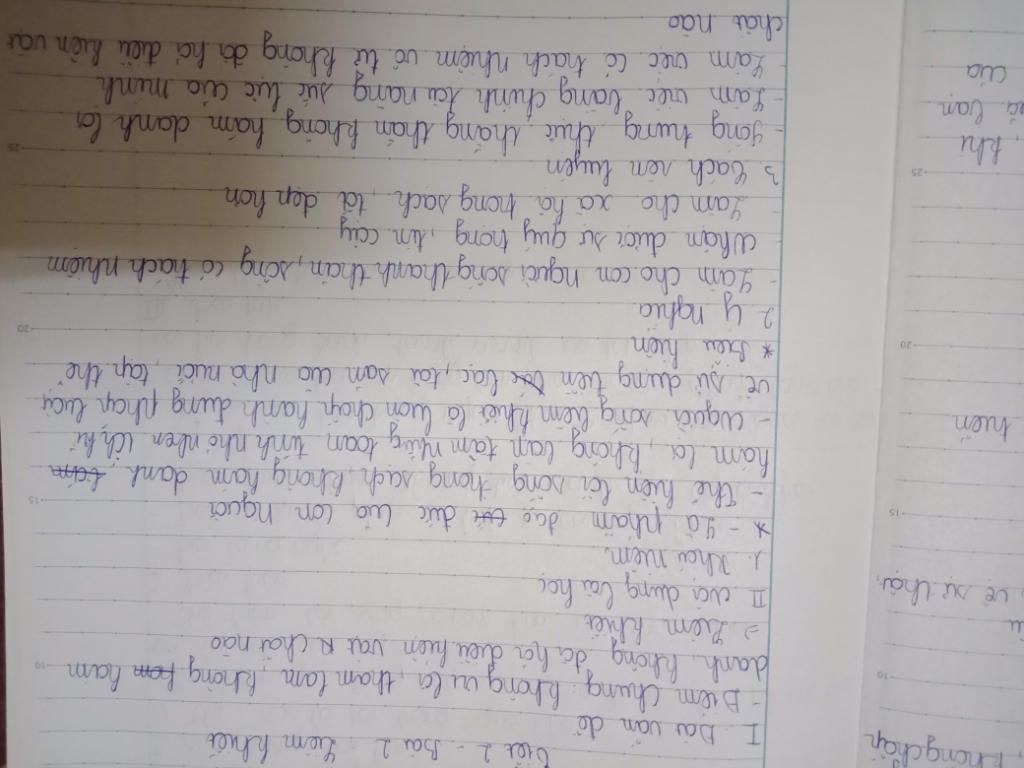 Tiết 2 - Bài 2 Liêm khiết
I Đặt vấn đề
- Điểm chung: không vụ lợi, tham lam, không ham hám
danh, không đòi hỏi điều kiện vật k chất nào
=> Liêm khiết
II Nội dung bài học
1. Khái niệm
* - Là phẩm đạo đức của con người
- Thể hiện lối sống trong sạch, không hám danh,
hám lợi, không bận tâm những toan tính nhỏ nhen ích kỉ
- Người sống liêm khiết là luôn chấp hành đúng pháp luật
về sử dụng tiền bạc, tài sản của nhà nước, tập thể
* Biểu hiện
2 Ý nghĩa
- Làm cho con người sống thanh thản, sống có trách nhiệm
- Nhận được sự quý trọng, tin cậy
- Làm cho xã hội trong sạch, tốt đẹp hơn
3 Cách rèn luyện
- Sống trung thực thẳng thắn không hám danh lợi
- Làm việc bằng chính tài năng sức lực của mình
- Làm việc có trách nhiệm vô tư không đòi hỏi điều kiện vật
chất nào
không chấp
về sự thật,
hiền
khi
bạn
của